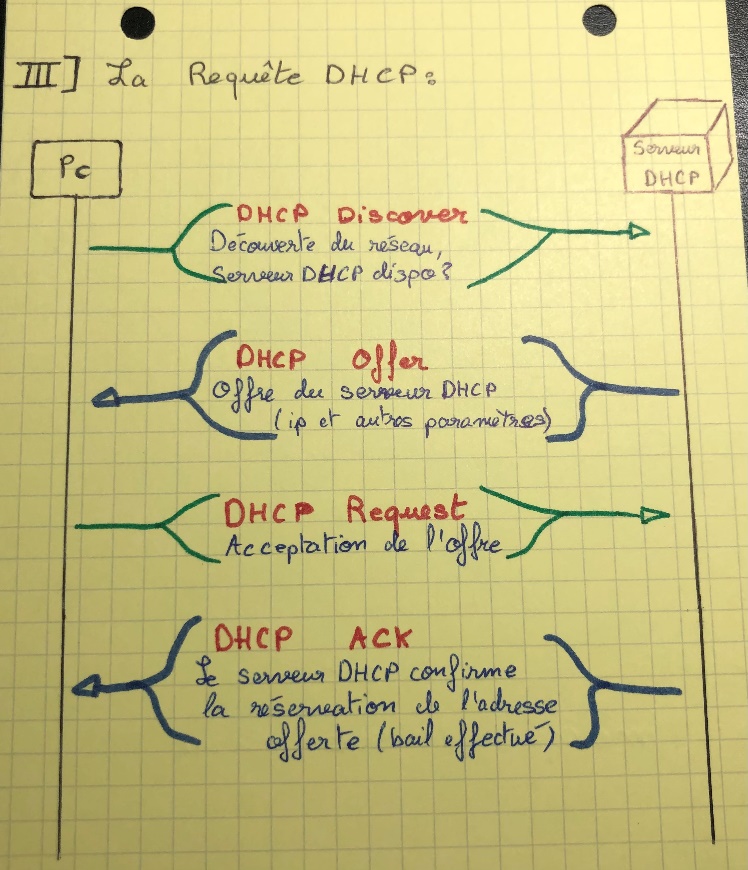 III] La Requête DHCP :
Pc
Serveur
DHCP
DHCP Discover
Découverte du réseau,
Serveur DHCP dispo ?
DHCP Offer
Offre du serveur DHCP
(ip et autres paramètres)
DHCP Request
Acceptation de l'offre
DHCP ACK
Le serveur DHCP confirme
la réservation de l'adresse
offerte (bail effectué)